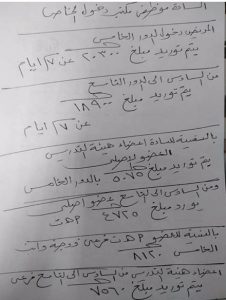 السادة موظفى مكتب دخول الخاص
المريض دخول الدور الخامس
يتم توريد مبلغ ٢٠٣٠٠ عن ٧ ايام
من السادس الى الدور التاسع
يتم توريد مبلغ ١٨٩٠٠
عن ٧ ايام
بالنسبة للسادة اعضاء هيئة التدريس
العضو الاصلى
يتم توريد مبلغ ٥٠٧٥ بالدور الخامس
ومن السادس الى التاسع عضو اصلى
يورد مبلغ ٤٧٢٥
بالنسبة للعضو فرعى زوجة وابن
الخامس ٨١٢٠
اعضاء هيئة التدريس من السادس الى التاسع فرعى
يتم توريد مبلغ ٧٥٦٠